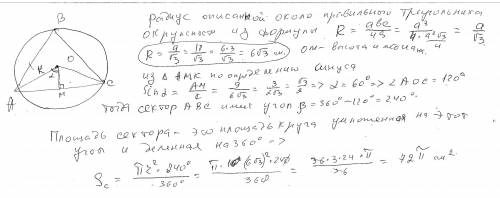 B
R
O
2
A
M
C
Радиус описанной около правильного треугольника
окружности из формулы R = abc/4S = a³/(4·a²√3) = a/√3
R = a/√3 = 18/√3 = 6·3/√3 = 6√3 см.
ОМ – высота и медиана, и
из Δ АМК по определению синуса
Sin α = AM/R = 9/6√3 = 3/2√3 = √3/2 => α = 60° => ∠AOC = 120°
тогда сектор АВС имеет угол β = 360° – 120° = 240°.
Площадь сектора – это площадь круга умноженная на этот
угол и деленная на 360° =>
Sc = πr²·240°/360° = π·(6√3)²·240/360 = 36·3·24·π/36 = 72π см².